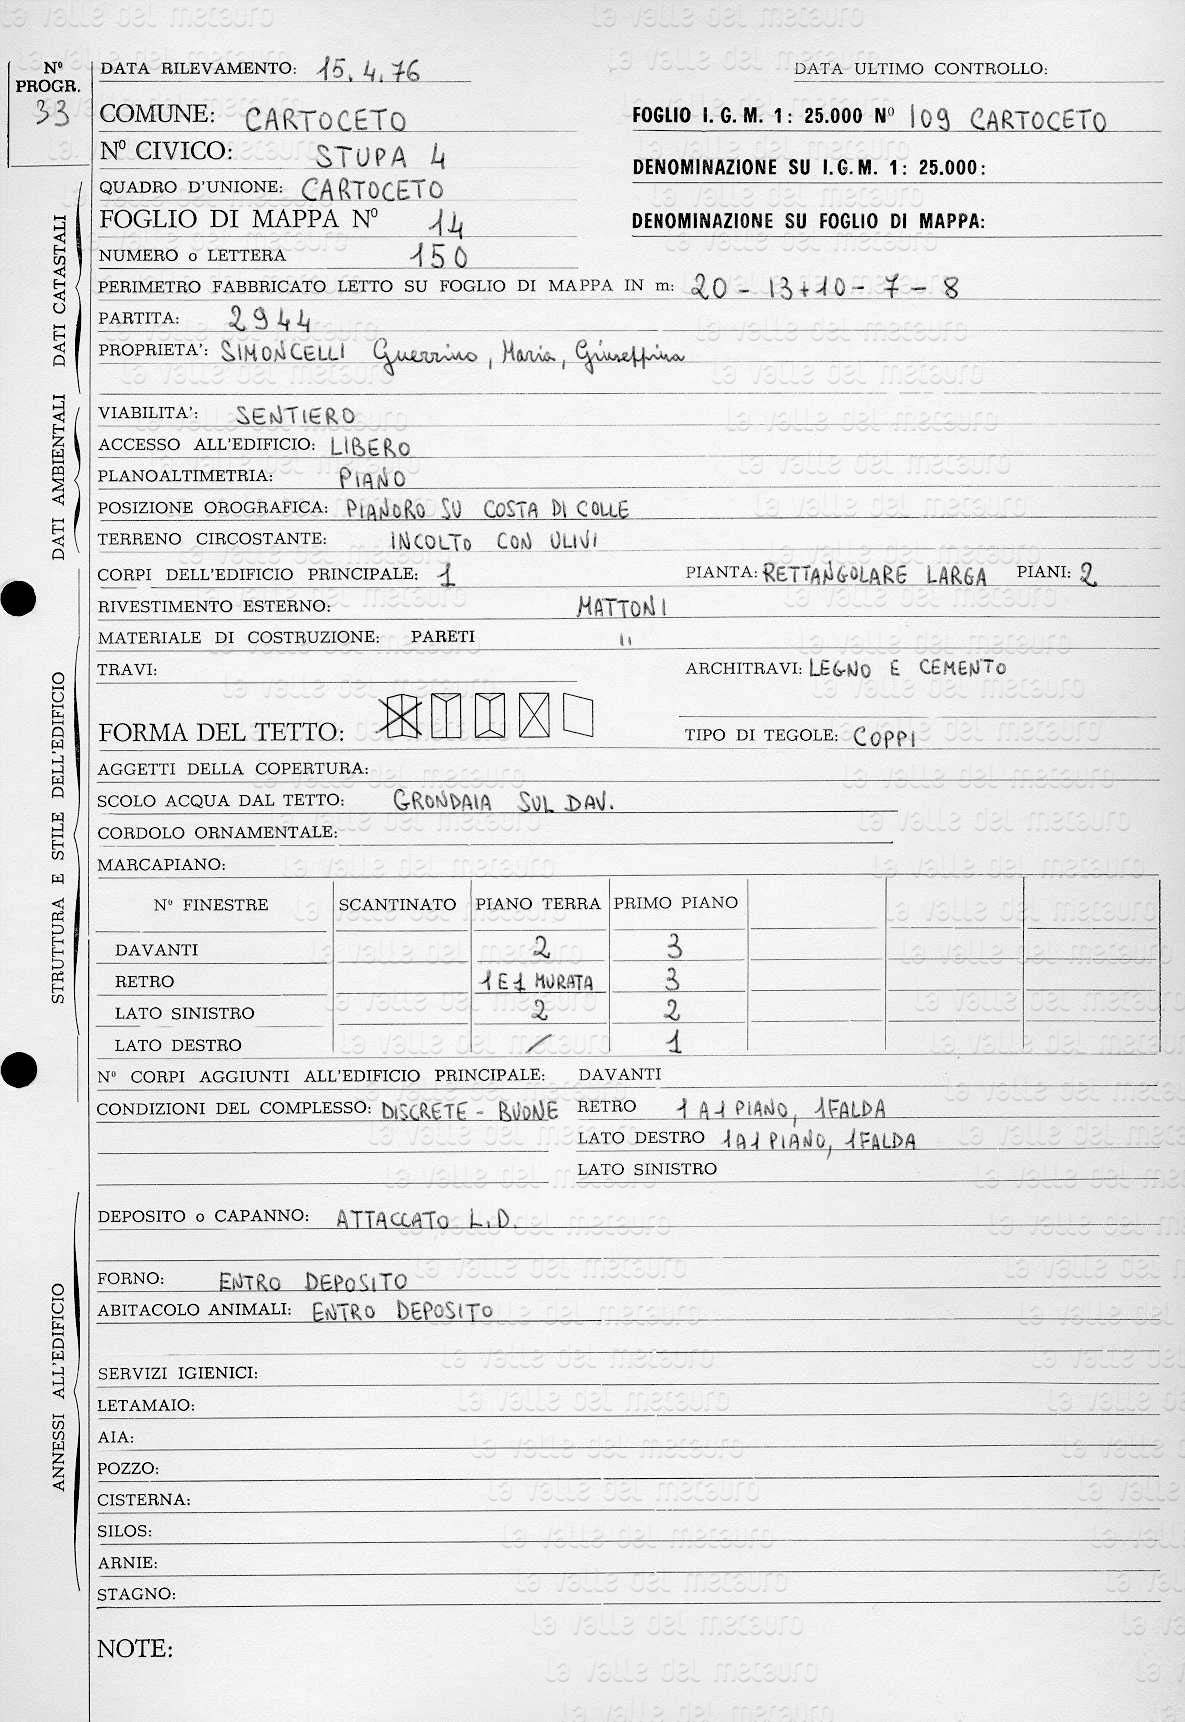 Nº PROGR. 33
DATA RILEVAMENTO: 15.4.76 DATA ULTIMO CONTROLLO:
COMUNE: CARTOCETO FOGLIO I. G. M. 1: 25.000 Nº 109 CARTOCETO
Nº CIVICO: STUPA 4 DENOMINAZIONE SU I.G.M. 1: 25.000:
QUADRO D'UNIONE: CARTOCETO
FOGLIO DI MAPPA Nº 14 DENOMINAZIONE SU FOGLIO DI MAPPA:
NUMERO o LETTERA 150
PERIMETRO FABBRICATO LETTO SU FOGLIO DI MAPPA IN m: 20 - 13+10 - 7 - 8
PARTITA: 2944
PROPRIETA': SIMONCELLI Guerrino, Maria, Giuseppina
DATI CATASTALI
VIABILITA': SENTIERO
ACCESSO ALL'EDIFICIO: LIBERO
PLANOALTIMETRIA: PIANO
POSIZIONE OROGRAFICA: PIANORO SU COSTA DI COLLE
TERRENO CIRCOSTANTE: INCOLTO CON ULIVI
DATI AMBIENTALI
CORPI DELL'EDIFICIO PRINCIPALE: 1 PIANTA: RETTANGOLARE LARGA PIANI: 2
RIVESTIMENTO ESTERNO: MATTONI
MATERIALE DI COSTRUZIONE: PARETI "
TRAVI: ARCHITRAVI: LEGNO E CEMENTO
FORMA DEL TETTO: TIPO DI TEGOLE: COPPI
AGGETTI DELLA COPERTURA:
SCOLO ACQUA DAL TETTO: GRONDAIA SUL DAV.
CORDOLO ORNAMENTALE:
MARCAPIANO:
Nº FINESTRE SCANTINATO PIANO TERRA PRIMO PIANO
DAVANTI 2 3
RETRO 1 E 1 MURATA 3
LATO SINISTRO 2 2
LATO DESTRO / 1
STRUTTURA E STILE DELL'EDIFICIO
Nº CORPI AGGIUNTI ALL'EDIFICIO PRINCIPALE: DAVANTI
CONDIZIONI DEL COMPLESSO: DISCRETE - BUONE RETRO 1 A 1 PIANO, 1 FALDA
LATO DESTRO 1 A 1 PIANO, 1 FALDA
LATO SINISTRO
DEPOSITO o CAPANNO: ATTACCATO L.D.
FORNO: ENTRO DEPOSITO
ABITACOLO ANIMALI: ENTRO DEPOSITO
SERVIZI IGIENICI:
LETAMAIO:
AIA:
POZZO:
CISTERNA:
SILOS:
ARNIE:
STAGNO:
ANNESSI ALL'EDIFICIO
NOTE:
la valle del metauro